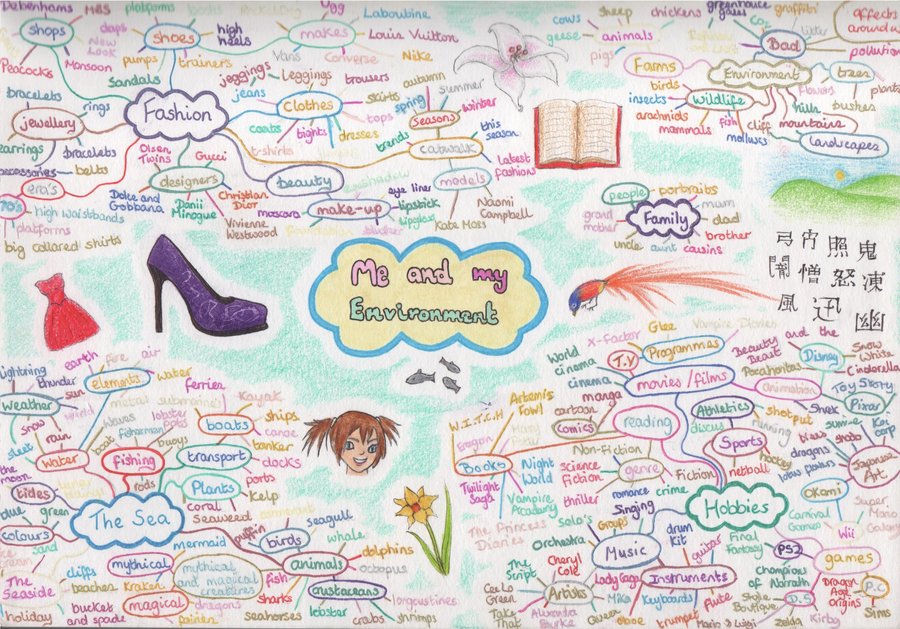 Debenhams
M&S
platforms
boots
Ugg
Laboutine
shops
daps
shoes
high
heels
makes
Louis Vuitton
New
Look
pumps
trainers
Vans
Converse
Nike
Peacocks
Monsoon
Sandals
jeggings
Leggings
trousers
autumn
bracelets
rings
jeans
Clothes
skirts
spring
summer
Fashion
tops
Seasons
winter
jewellery
coats
tights
dresses
trends
this
season
earrings
bracelets
Olsen
Twins
Gucci
t-shirts
catwalk
belts
Latest
fashion
accessories
designers
beauty
eyeshadow
models
era's
Dolce and
Gabbana
Danii
Minogue
Christian
Dior
mascara
make-up
eye liner
lipstick
lipgloss
Naomi
Campbell
70's
high waistbands
platforms
Vivienne
Westwood
foundation
blusher
Kate Moss
big collared shirts
cows
sheep
chickens
greenhouse
gases
graffiti
affects
around u
geese
animals
litter
Bad
pollution
pigs
Farms
Environment
trees
birds
flowers
plants
insects
wildlife
hills
bushes
arachnids
fish
cliff
mountains
mammals
molluscs
landscapes
people
portraits
mum
grand
mother
Family
dad
brother
uncle
aunt
cousins
弓
照
鬼
闇
憎
怒
凍
風
迅
幽
Me and my
Environment
lightning
thunder
earth
fire
air
sun
elements
water
ferries
Kayak
weather
wind
metal
submarines
boats
ships
snow
rain
waves
fisherman
lobster
pots
canoe
sleet
buoys
tanker
water
fishing
transport
docks
the
moon
rods
Plants
ports
tides
kelp
blue
green
The Sea
coral
Seaweed
cormorant
colours
puffin
birds
seagull
sand
mermaid
whale
cream
cliffs
mythical
mythical
and magical
creatures
animals
dolphins
octopus
The
Seaside
beaches
Kraken
fish
crustaceans
sharks
langoustines
holiday
bucket
and spade
magical
dragons
fairies
seahorses
lobster
crabs
shrimps
X-Factor
Glee
Vampire Diaries
World
cinema
T.V
Programmes
Beauty
and the
Beast
Disney
Snow
White
cinema
movies/films
Pocahontas
Cinderella
manga
Animation
Toy Story
Artemis
Fowl
cartoon
Athletics
Shrek
Pixar
W.I.T.C.H
Comics
reading
discus
shotput
Gorgon
Harry
Potter
Sports
running
sumi-e
Koi
carp
Non-Fiction
birds
shodo
Books
hockey
dragons
Japanese
Art
Night
World
Science
Fiction
genre
Fiction
netball
lotus flowers
Twilight
Saga
thriller
romance
crime
Okami
Vampire
Academy
Singing
Hobbies
Carnival
Games
Super
Mario
Galaxy
The Princess
Diaries
Solo's
Groups
drum
kit
Final
Fantasy
Wii
Orchestra
Music
guitar
PS2
games
The
Script
Cheryl
Cole
Lady Gaga
Instruments
Champions
of Norrath
Dragon
Age
Origins
P.C
Cee Lo
Green
Artists
Mika
Keyboards
flute
Style
Boutique
D.S
Take
That
Alexandra
Burke
Queen
oboe
trumpet
Mario & Luigi
Zelda
Kirby
Sims